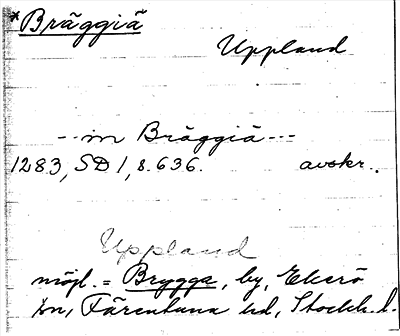 *Bräggiä
Uppland
--in Bräggiä---
1283, SD 1, s. 636. avskr.
Uppland
möjl. = Brygga, by, Ekerö
sn, Färentuna hd, Stockh. l.